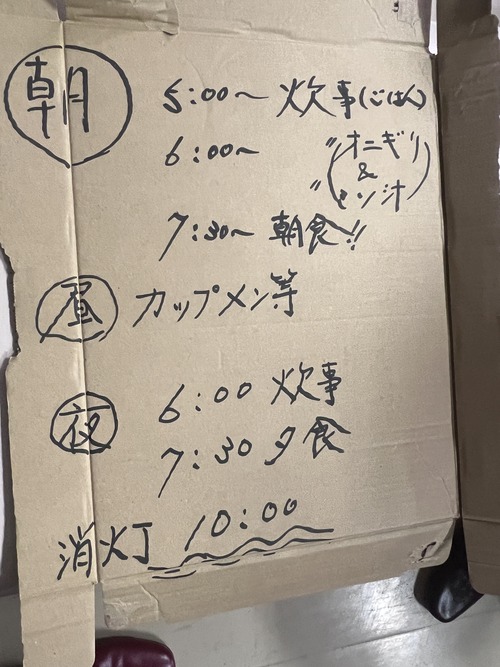 朝
5:00～ 炊事(ごはん)
6:00～ 〃(オニギリ
&
〃 ミソ汁)
7:30～ 朝食!!
昼 カップメン等
夜 6:00 炊事
7:30 夕食
消灯 10:00